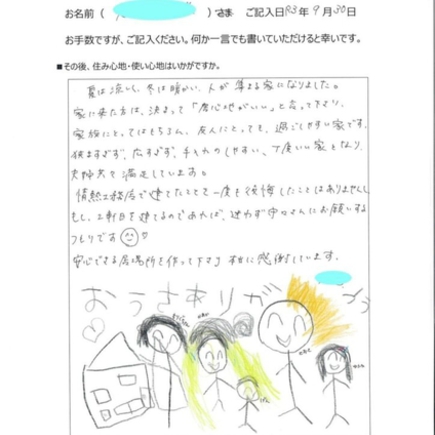 お名前（　　　）さま　ご記入日 R3年9月30日
お手数ですが、ご記入ください。何か一言でも書いていただけると幸いです。
■その後、住み心地・使い心地はいかがですか。
夏は涼しく、冬は暖かい、人が集まる家になりました。
家に来た方は、決まって「居心地がいい」と言って下さり、
家族にとってはもちろん、友人にとっても、過ごしやすい家です。
狭すぎず、広すぎず、手入れのしやすい、丁度いい家となり、
夫婦共々満足しています。
情熱工務店で建てたことを一度も後悔したことはありません。
もし、2軒目を建てるのであれば、迷わず中口さんにお願いする
つもりです
安心できる居場所を作って下さり本当に感謝しています。
おうちありがとう